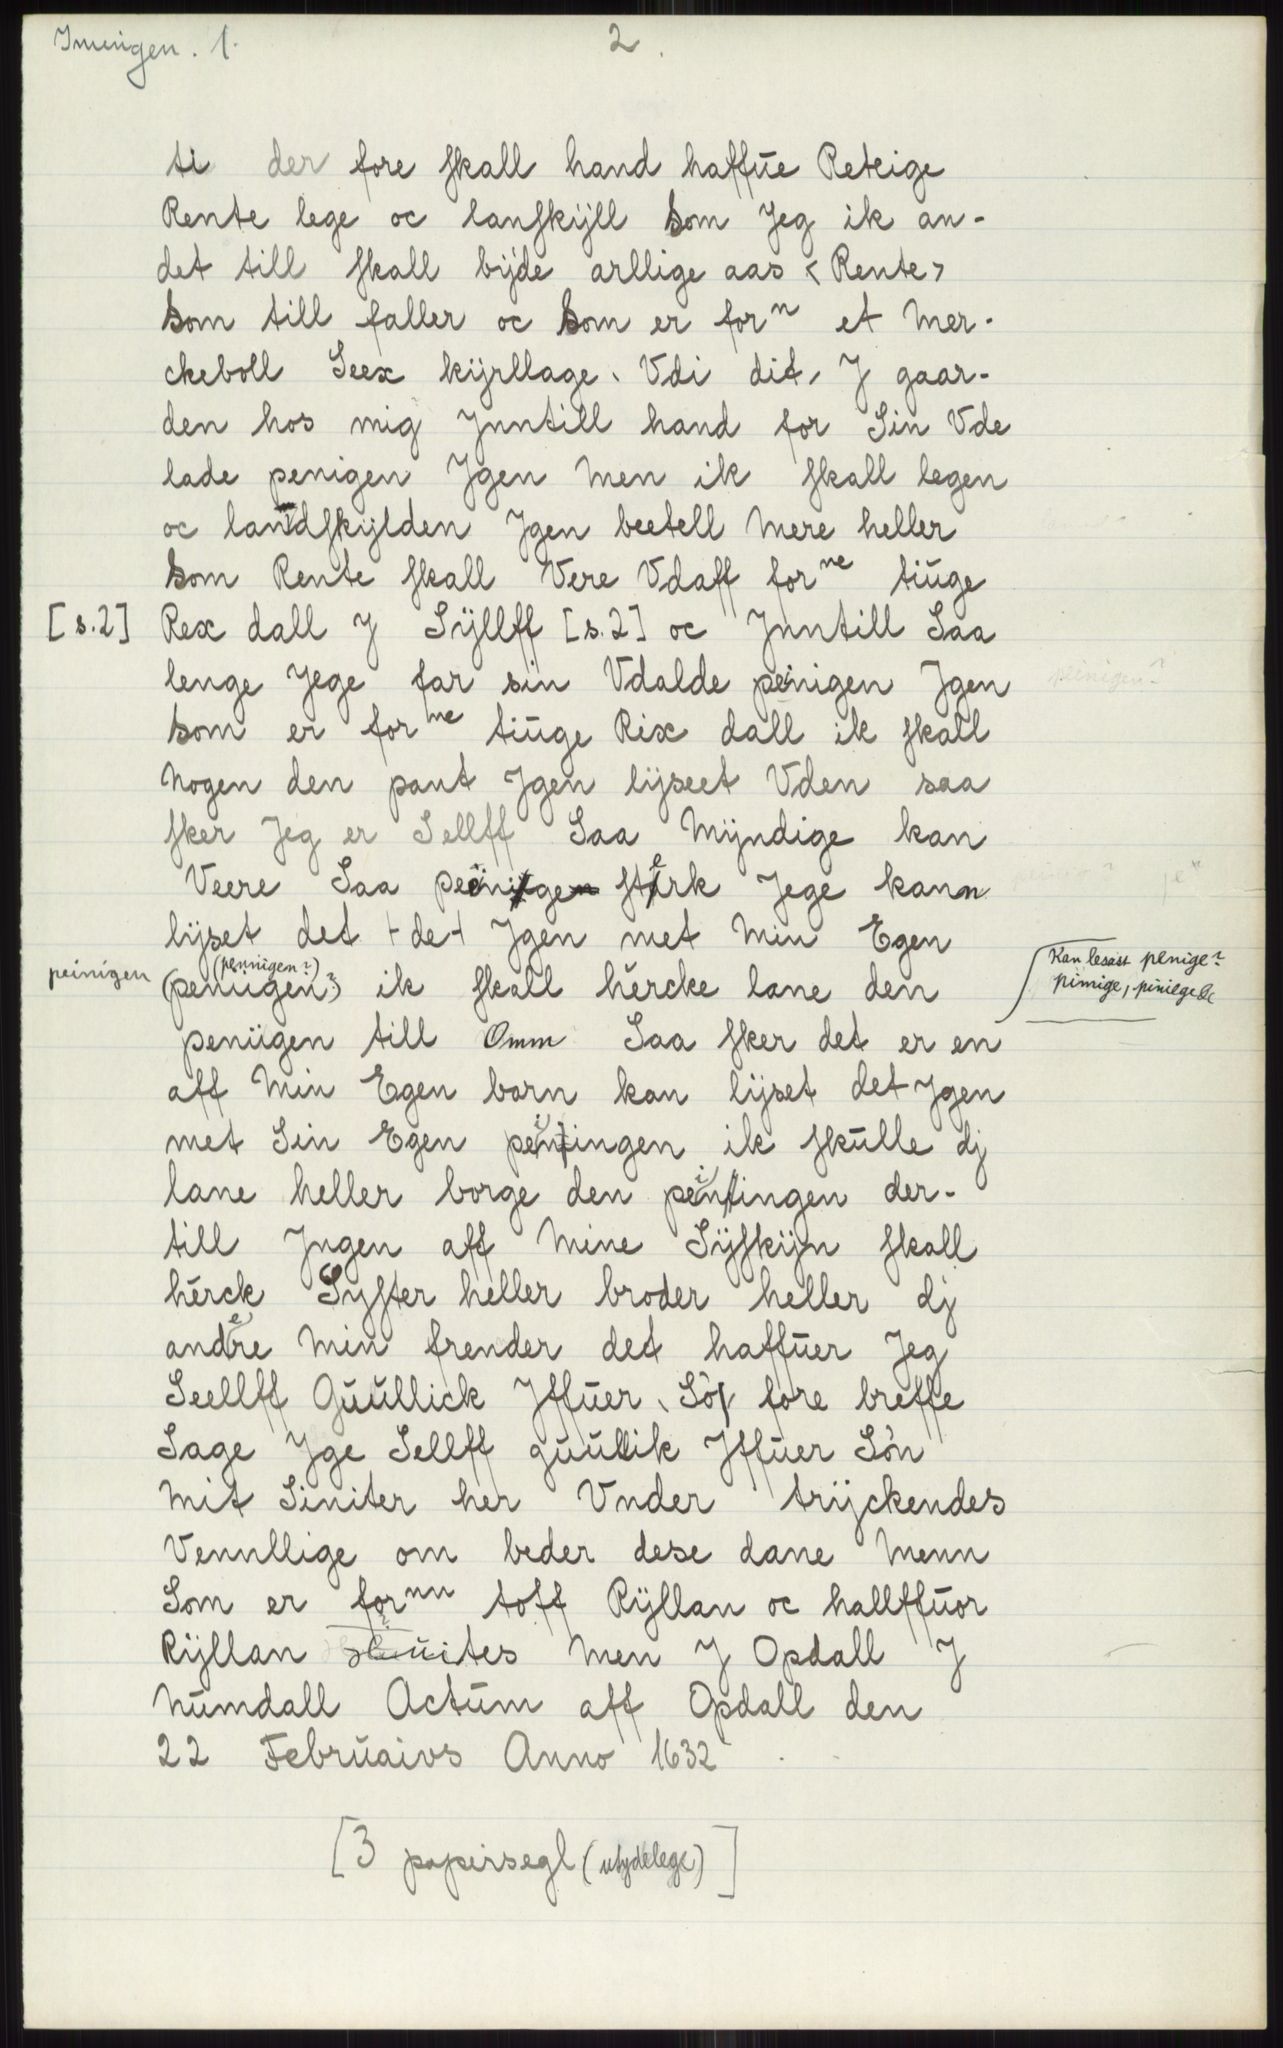 Imingen. 1.
2.
ti der fore skall hand haffūe Retige
Rente lege oc lanskÿll som Jeg ik an-
det till skall bÿde arllige aas < Rente >
som till faller oc som er forⁿ et Mer-
ckeboll Seex kÿrllage. Vdi dit, J gaar-
den hos mig Jnntill hand for Sin Vde
lade penigen Jgen Men ik skall legen
oc landskÿlden Jgen beetell Mere heller
som Rente skall Vere Vdaff forⁿᵉ tiūge
[s.2] Rex dall J Sÿllff [s.2] oc Jnntill Saa
lenge Jege far sin Vdalde peinigen Jgen
peinigen?
som er forⁿᵉ tiūge Rix dall ik skall
Nogen den pant Jgen lÿseet Vden saa
sker Jeg er Sellff Saa Mÿndige kan
Veere Saa peinige sterk Jege kann
lÿset det ⊢de⊣ Jgen met Min Egen
peinigen (penūgen?) ik skall hercke lane den
(pennigen?)
Kan lesast penige?
pimige, piniege &c
peniigen till Omm Saa sker det er en
aff Min Egen barn kan lÿset det Jgen
met Sin Egen peiningen ik skūlle dj
lane heller borge den peiningen der-
till Jngen aff Mine Sÿskÿn skall
hērck Syster heller broder heller dj
andre Min frender det haffūer Jeg
Seellff Gūūllick Jffūer, Søn fore breffe
Sage Jge Sellff gūūllik Jffūer Søn
Mit Siniter her Vnder trÿckendes
Vennllige om beder dese dane Menn
Som er forⁿⁿ toff Rÿllan oc hallffūor
Rÿllan Men J Opdall J
Nūmdall Actūm aff Opdall den
22 Febrūaivs Anno 1632
[3 papirsegl (utydelege)]